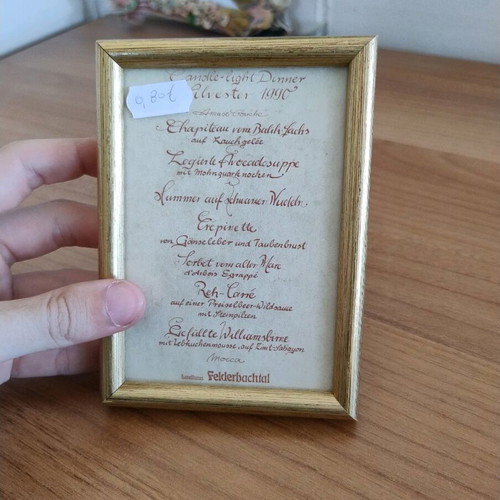 0,80€
Candle-light Dinner
Silvester 1990
Chapiteau vom Balik-Lachs
auf Rauchgelée
Legierte Avocadosuppe
mit Mohnquarknocken
Hummer auf schwarzer Nudeln
Crépinette
von Gänseleber und Taubenbrust
Sorbet vom alten Marc
d'Arbois Egrappé
Reh-Carré
auf einer Preiselbeer-Wildsauce
mit Steinpilzen
Gefüllte Williamsbirne
mit Lebkuchenmousse, auf Zimt-Sabayon
Mocca
Felderbachtal